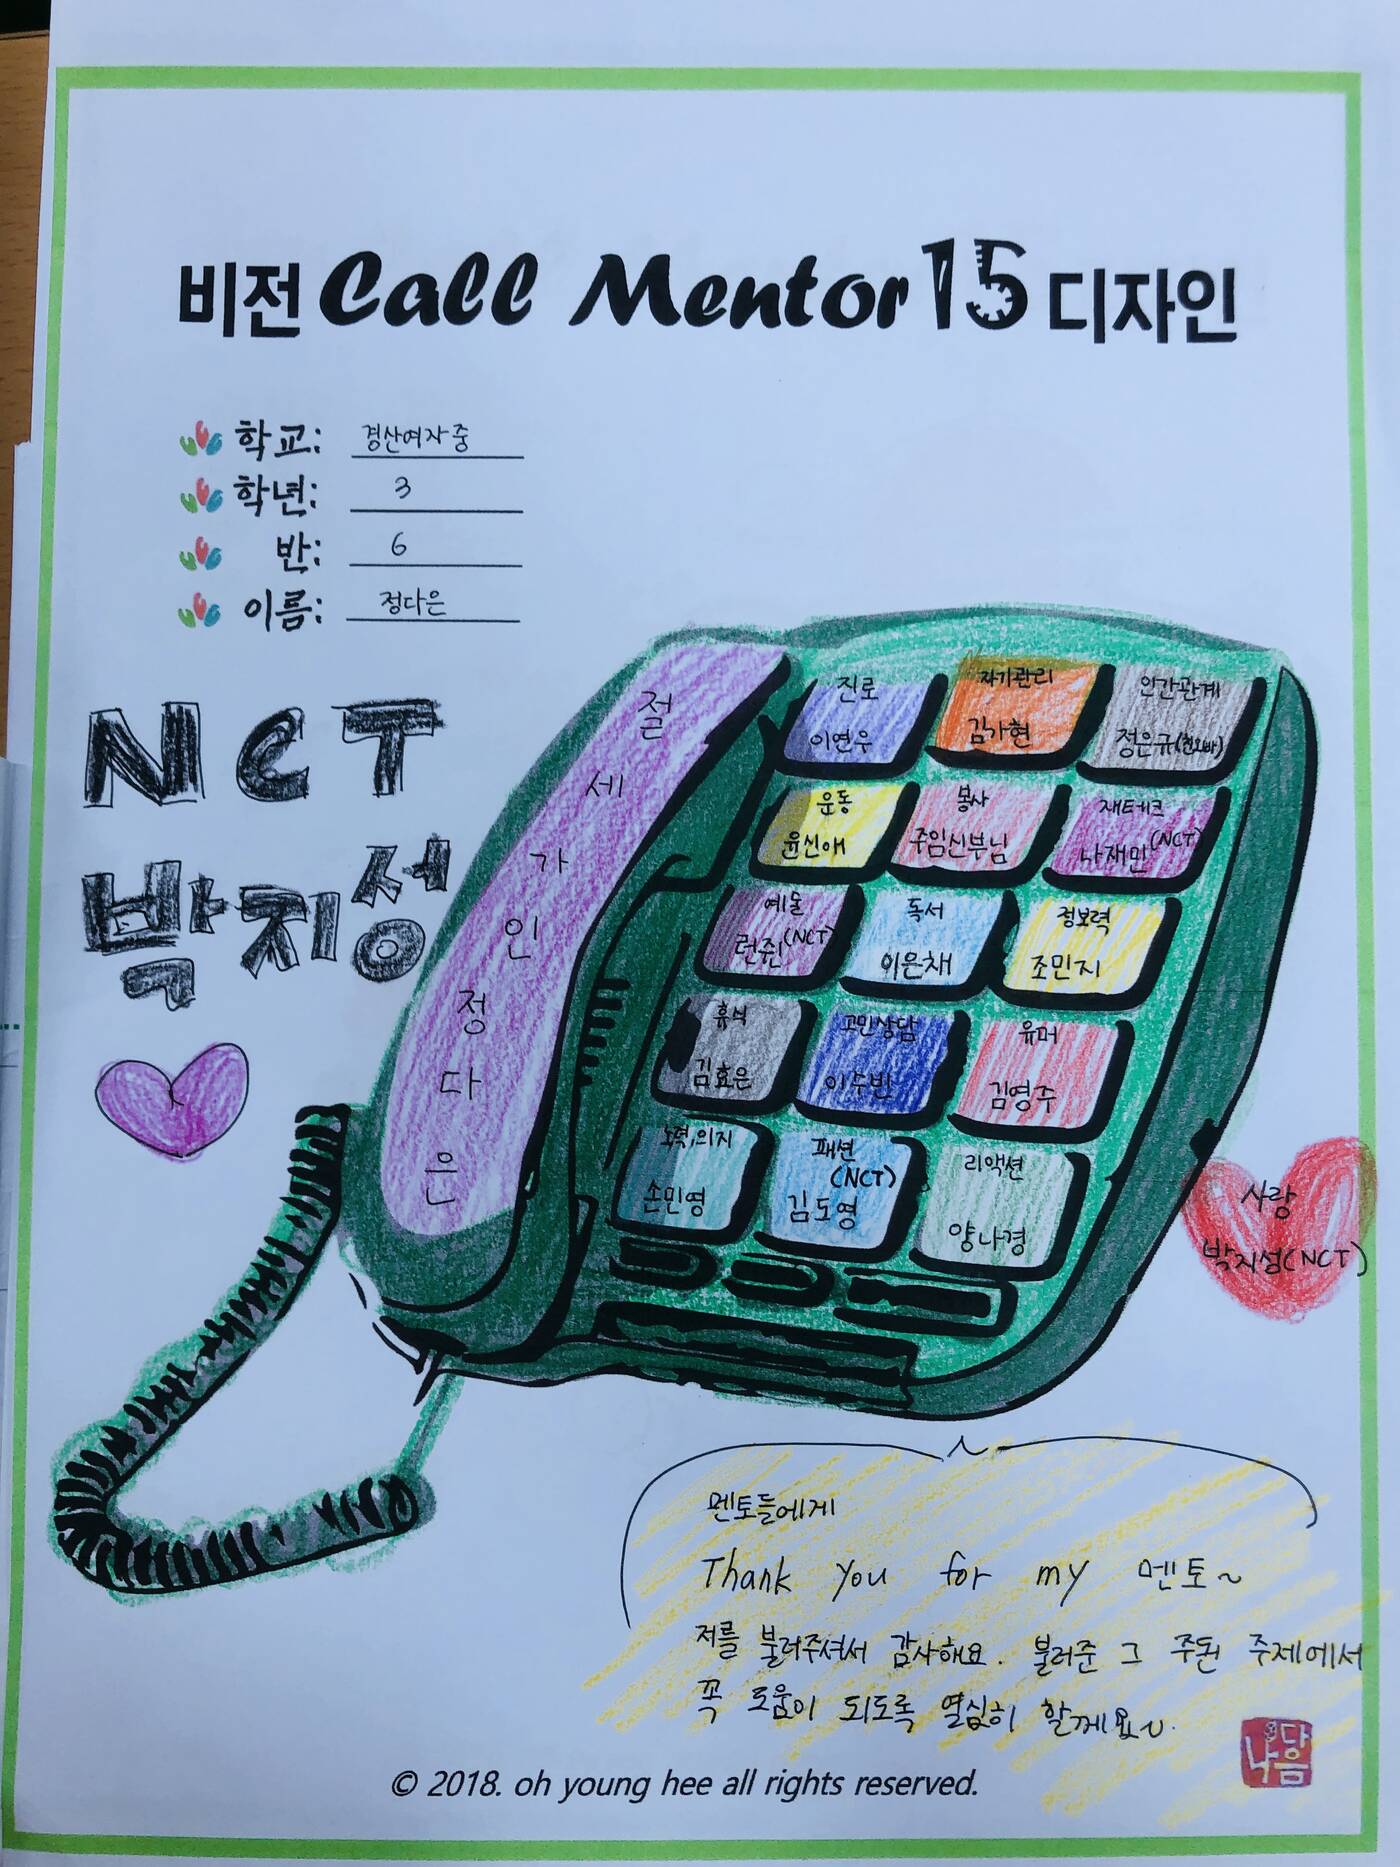 비전 Call Mentor 15 디자인
학교: 경산여자중
학년: 3
반: 6
이름: 정다은
NCT
박지성
절세가인정다은
진로
이연우
자기관리
김가현
인간관계
정은규(친오빠)
운동
윤신애
봉사
주임신부님
재테크
나재민(NCT)
예술
런쥔(NCT)
독서
이은채
정보력
조민지
휴식
김효은
고민상담
이수빈
유머
김영주
노력,의지
손민영
패션
(NCT)
김도영
리액션
양나경
사랑
박지성(NCT)
멘토들에게
Thank you for my 멘토~
저를 불러주셔서 감사해요. 불러준 그 주된 주제에서
꼭 도움이 되도록 열심히 할께요~.
© 2018. oh young hee all rights reserved.